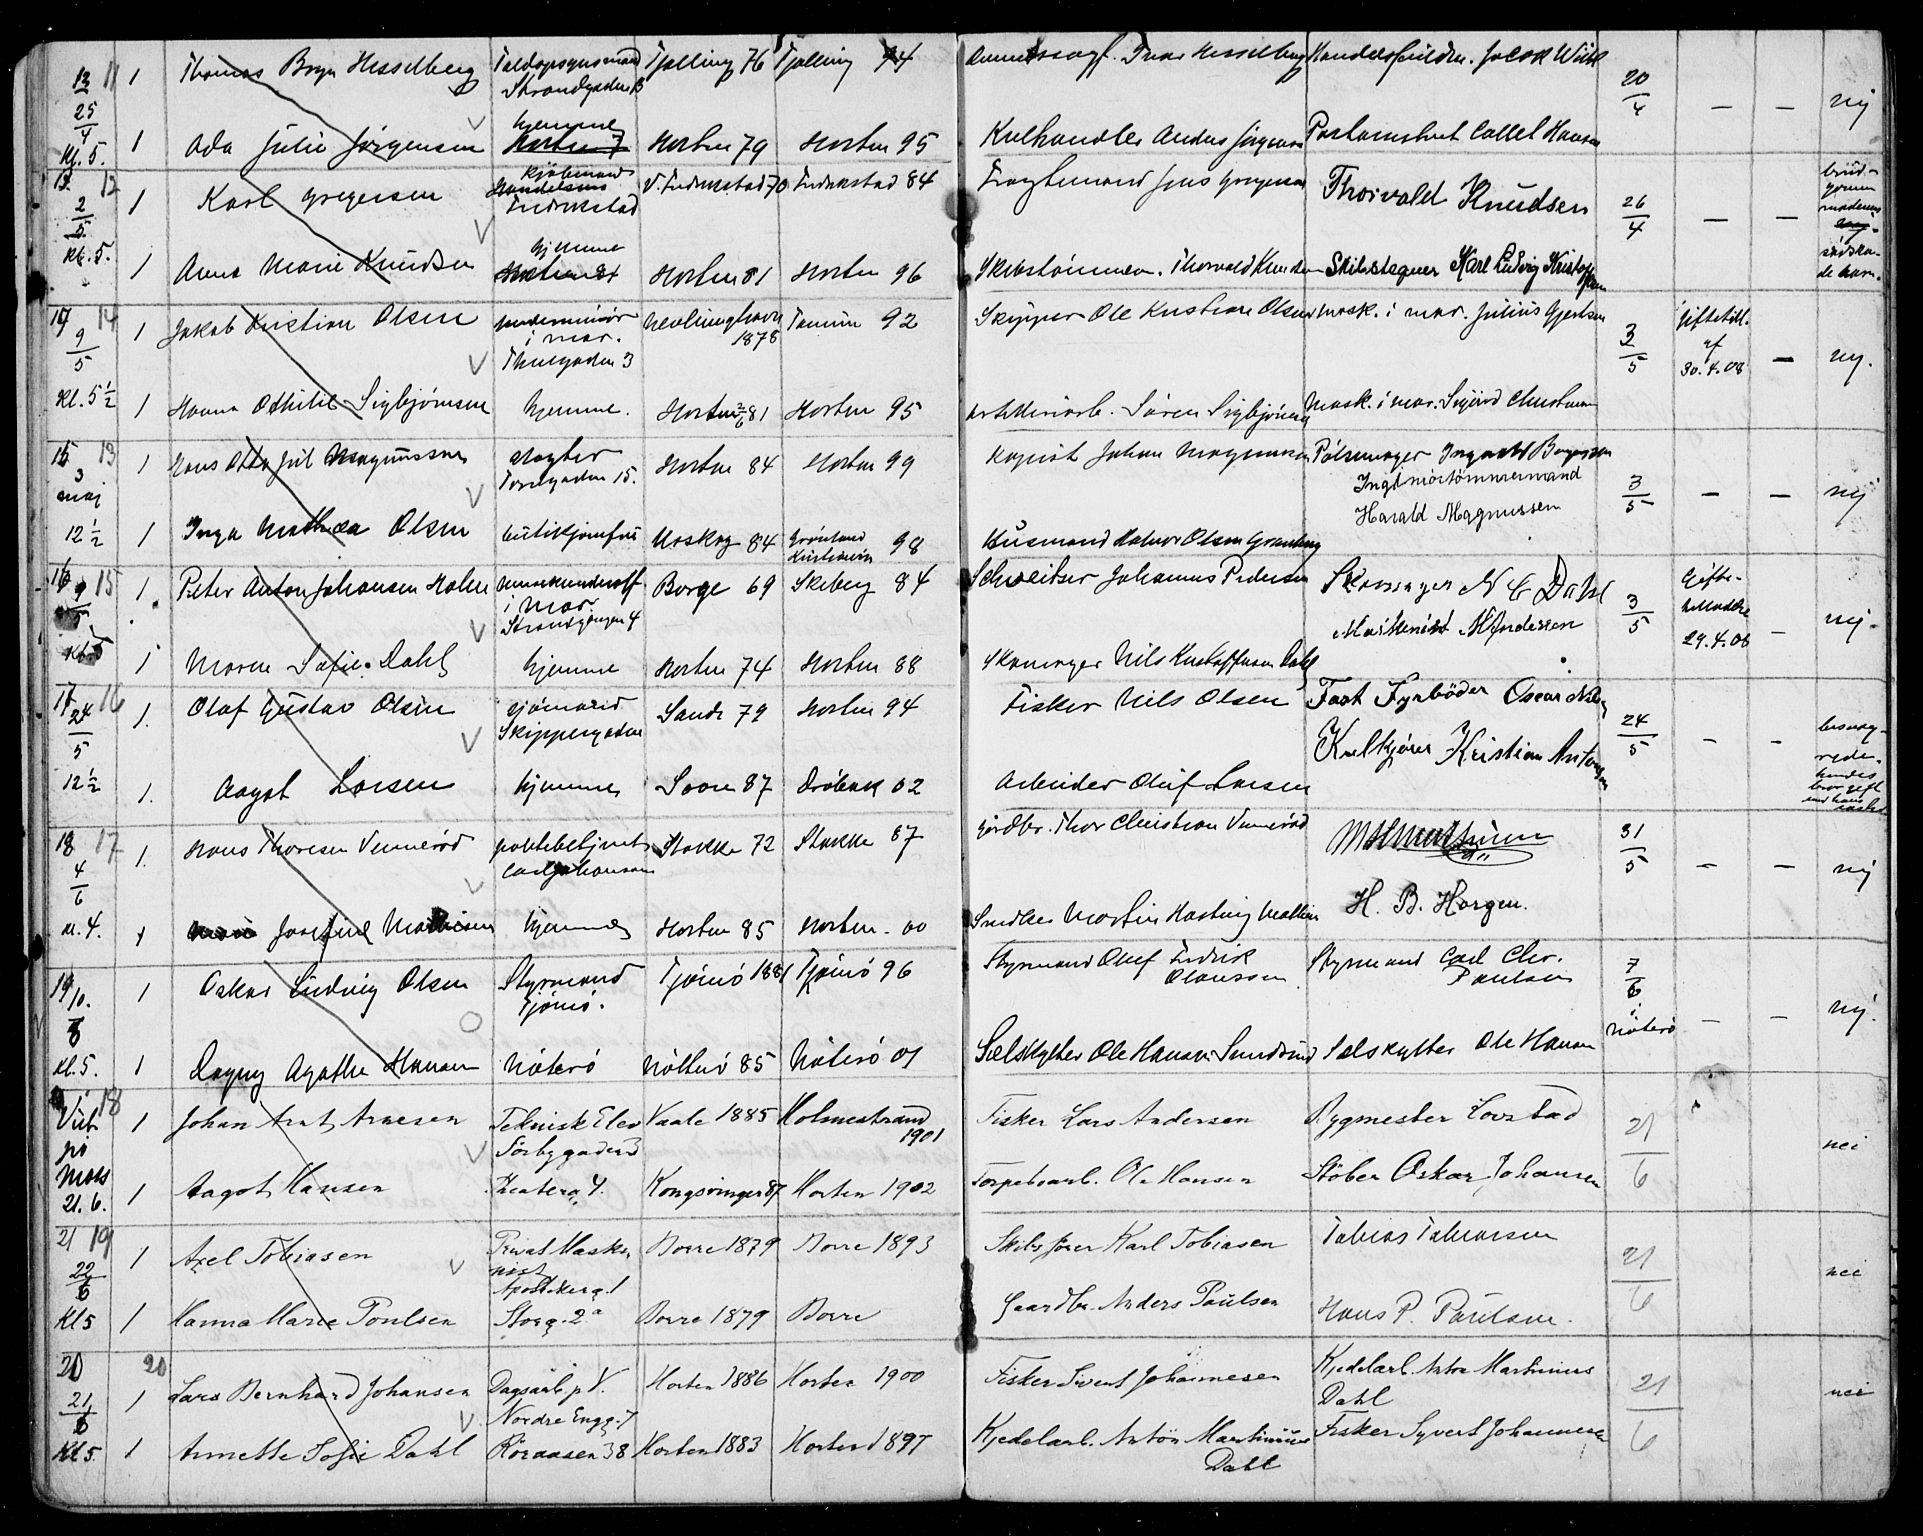 12 11 1 Thomas Bryn Hesselberg Tjølling 76 Tjølling 94 Ivar Hesselberg Jacob Wiik 20/4 — — nej
25/4 Strandgaden
Kl. 5. 1 Ada Julie Jørgensen hjemme Horten 79 Horten 95 Kulhandler Anders Jørgensen Hansen
13. 12 1 Karl Gregersen kjøbmand V. Fredrikstad 70 Fredrikstad 84 Jens Gregersen Thorvald Knudsen 26/4 — —
2/5 Fredrikstad
Kl. 5. 1 Anna Marie Knudsen hjemme Horten 81 Horten 96 Skibstømmerm. Thorvald Knudsen Skibstegner Karl Ludvig Kristoffersen
14 1 Jakob Kristian Olsen underminør Nevlunghavn 1878 Tanum 92 Skipper Ole Kristian Olsen Mask. i mar. Julius Gjertsen 3/5 Giftetill. af 30.4.08 — nej.
9/5 i mar.
Thuegaden 3
Kl. 5½ 1 Hanna Othilie Sigbjørnsen hjemme. Horten 2/6 81 Horten 95 Søren Sigbjørnsen Mask. i mar. Sigurd Christensen
15 13 1 Hans Otto Juul Magnussen slagter Horten 84 Horten 99 Kopist Johan Magnussen Pølsemager Ingvald Børgesen 3/5 — — nej
3 maj Torvegaden 15. Ingeniørtømmermand
Harald Magnussen
12½ 1 Inga Mathea Olsen butikjomfru Urskog 84 Grønland Kristiania 98 Husmand Halvor Olsen Granberg
16 15 1. Peter Anton Johansen Holm Borge 69 Skeberg 84 Schweitser Johannes Pedersen Skomager N C Dahl 3/5 Gifte- 29.4.08 — nej.
9/5 i Mar. Maskinist M Andersen
Strandgangen 4
Kl. 5 1 Maren Sofie Dahl hjemme Horten 74 Horten 88 Skomager Nils Kristoffersen Dahl
17 16 1. Olaf Gustav Olsen sjømand Sande 79 Horten 94 Fisker Nils Olsen Fast Fyrbøder Oscar Nilsen 24/5 — —
24/5 Skippergaden Kulkjører Kristian Antonsen
12½ 1. Aagot Larsen hjemme Svorn 87 Drøbak 02 Arbeider Oluf Larsen
18 17 1. Hans Thoresen Vennerød politibetjent Stokke 72 Stokke 87 Gårdbr. Thor Christian Vennerød 31/5 — — nej
4/6
kl. 4. 1 Josefine Mathisen hjemme Horten 85 Horten 00 Snedker Martin Hartvig Mathisen H. B. Horgen.
19 1 Oskar Ludvig Olsen Styrmand Tjømø 1881 Tjømø 96 Styrmand Oluf Fredrik Olaussen Styrmand Carl Chr. Paulsen 7/6 Nøterø — — nej.
10/6 Tjømø.
Kl. 5. 1 Dagny Agathe Hansen Nøterø Nøterø 85 Nøterø 01 Sælskytter Ole Hansen Sundsund Sælskytter Ole Hansen
18 Viet 1 Johan Arnt Arnesen Teknisk Elev Vaale 1885 Holmestrand 1901 Fisker Lars Andersen Bygmester Lovstad 21/6 nei
på Moss Sørbygaden 3
21. 6. 1 Aagot Hansen Theaterg. 4. Kongsvinger 87 Horten 1902 Torpedoarb. Ole Hansen Støber Oskar Johansen
21 19 1 Axel Tobiasen Privat Maskinist Borre 1879 Borre 1893 Skibsfører Karl Tobiasen Tobias Tobiassen 21/6 nei
22/6 Apothekerg. 1
Kl 5 1 Hanna Marie Poulsen Storg. 2ª Borre 1879 Borre Gaardbr. Anders Paulsen Hans P. Paulsen.
20 20 1 Lars Bernhard Johansen Dagsarb. p. V. Horten 1886 Horten 1900 Fisker Sivert Johannesen Kjedelarb. Anton Martinius Dahl 21/6 nei
21/6 Nordre Engg. 7
Kl 5. 1 Annette Sofie Dahl Røraasen 38 Horten 1883 Horten 1897 Kjedelarb. Anton Martinius Dahl Fisker Syvert Johannesen